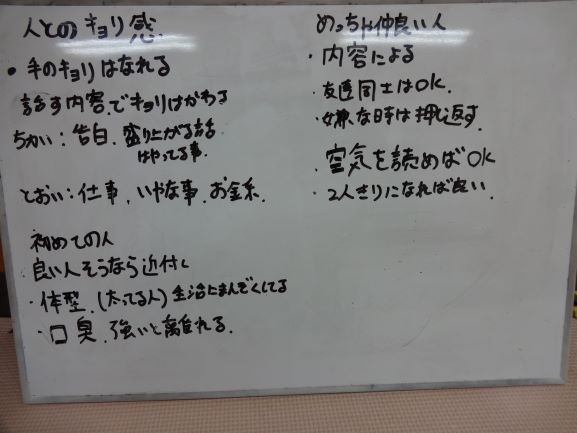 人とのキョリ感
・手のキョリはなれる
話す内容でキョリはかわる
ちかい：告白、盛り上がる話
はやってる事、
とおい：仕事、いやな事、お金系、
初めての人
良い人そうなら近付く
・体型、(太ってる人) 生活にまんぞくしてる
・口臭、強いと離れる、
めっちゃ仲良い人
・内容による
・友達同士はOK、
・嫌な時は押し返す、
・空気を読めばOK
・2人きりになれば良い、